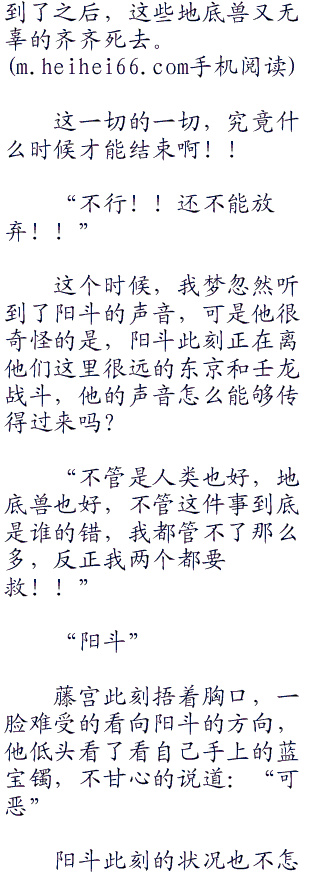 到了之后，这些地底兽又无
辜的齐齐死去。
(m.heihei66.com手机阅读)
这一切的一切，究竟什
么时候才能结束啊！！
“不行！！还不能放
弃！！”
这个时候，我梦忽然听
到了阳斗的声音，可是他很
奇怪的是，阳斗此刻正在离
他们这里很远的东京和壬龙
战斗，他的声音怎么能够传
得过来吗？
“不管是人类也好，地
底兽也好，不管这件事到底
是谁的错，我都管不了那么
多，反正我两个都要
救！！”
“阳斗”
藤宫此刻捂着胸口，一
脸难受的看向阳斗的方向，
他低头看了看自己手上的蓝
宝镯，不甘心的说道：“可
恶”
阳斗此刻的状况也不怎